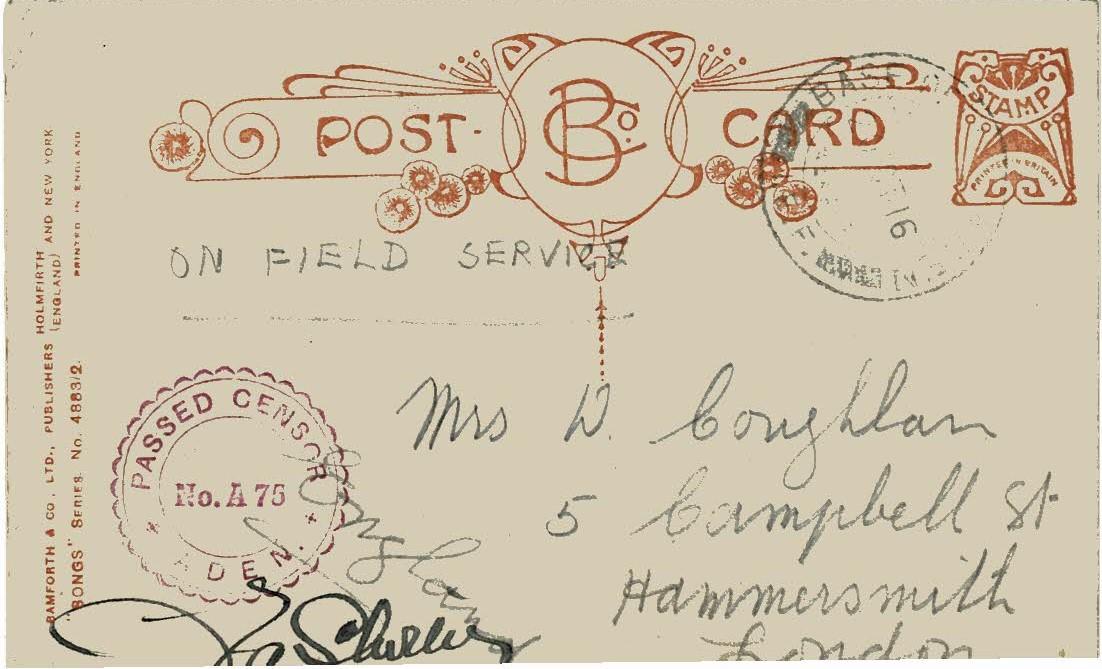 BAMFORTH & CO. LTD., PUBLISHERS HOLMFIRTH (ENGLAND) AND NEW YORK
"SONGS" SERIES No. 4883/2.
PRINTED IN ENGLAND
POST CARD
B Co.
STAMP
PRINTED IN BRITAIN
BASE
16
ON FIELD SERVICE
PASSED CENSOR
No. A 75
ADEN.
England
Mrs D. Coughlan
5 Campbell St
Hammersmith
London